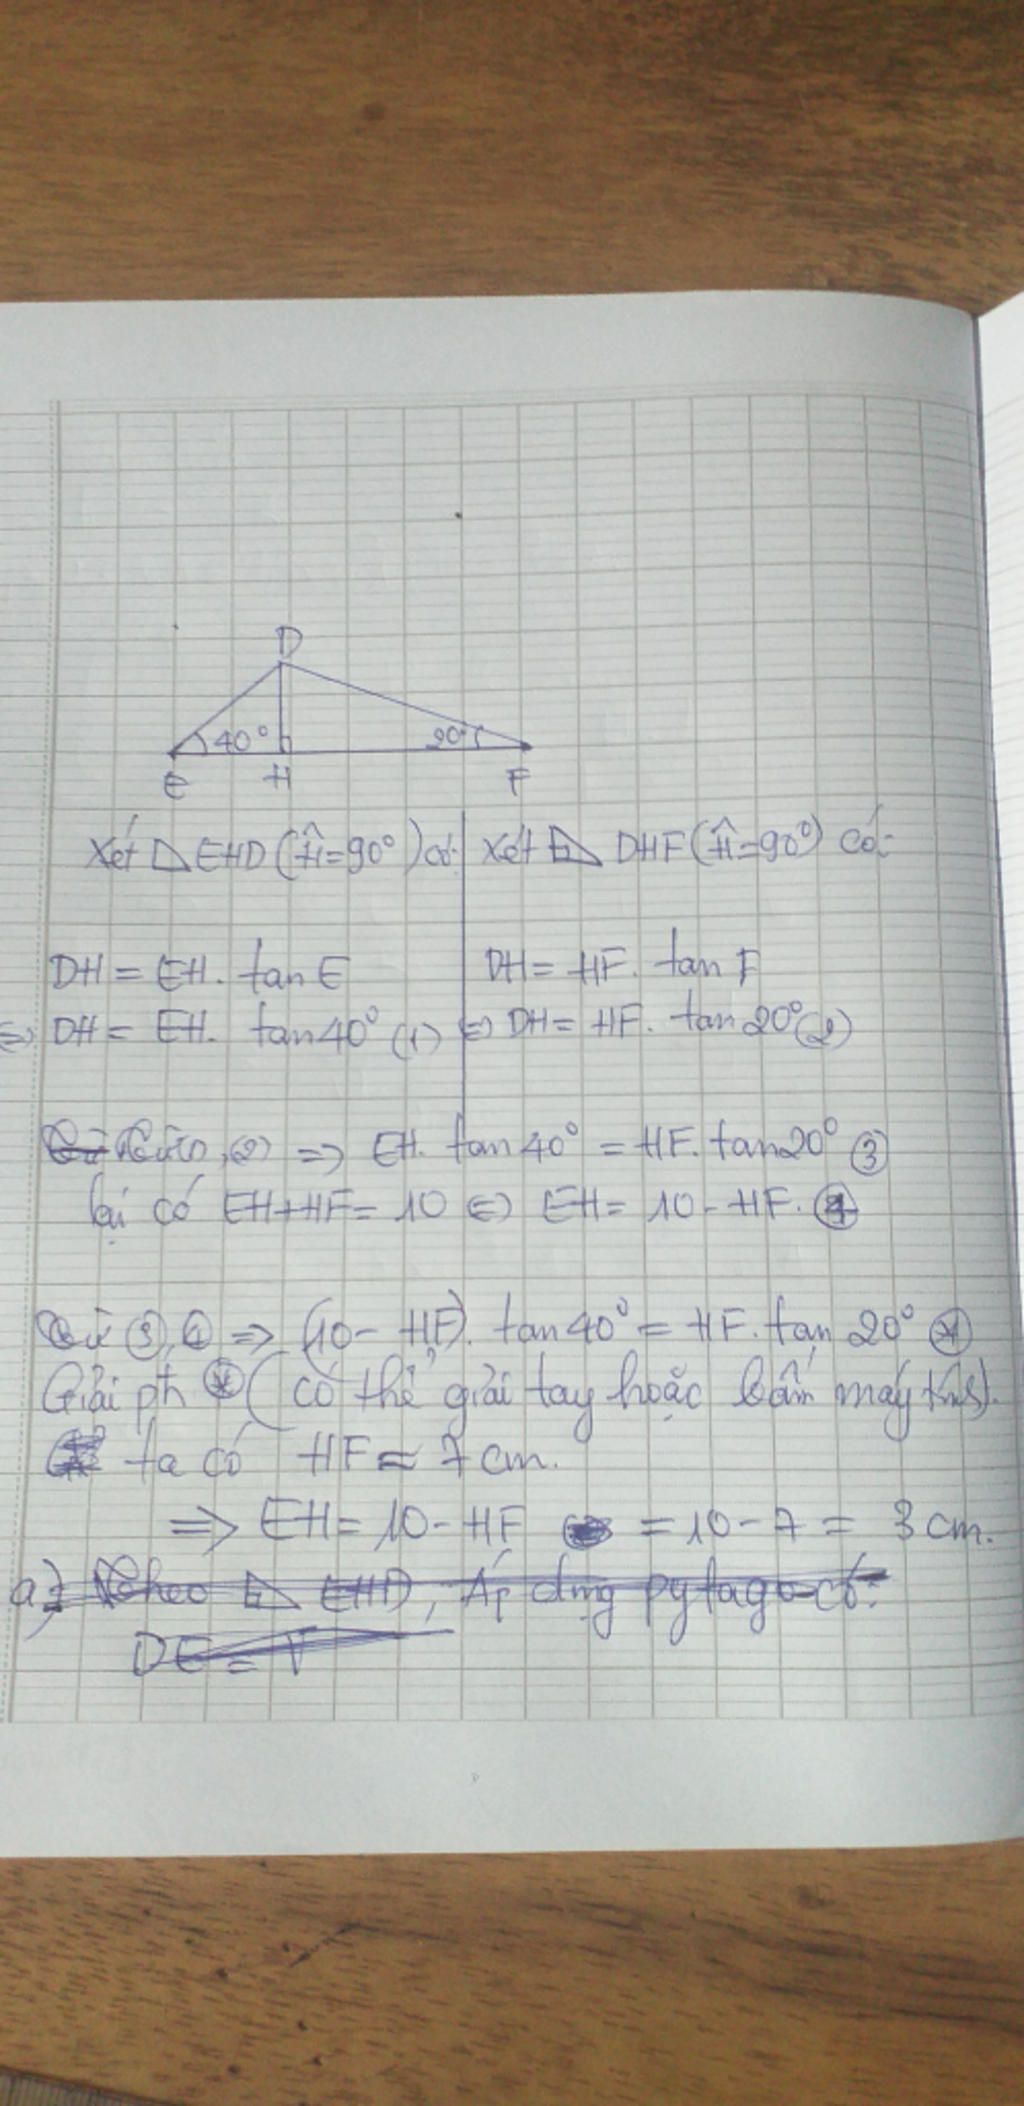 D
40° 20°
E H F
Xét △ EHD (Ĥ=90°) có: Xét △ DHF (Ĥ=90°) có:
DH = EH. tan E DH = HF. tan F
⇔ DH = EH. tan 40° (1) ⇔ DH = HF. tan 20° (2)
Từ (1), (2) ⇒ EH. tan 40° = HF. tan 20° ③
lại có EH + HF = 10 ⇔ EH = 10 - HF. ④
Từ ③, ④ ⇒ (10 - HF). tan 40° = HF. tan 20° (*)
Giải pt (*) (có thể giải tay hoặc bấm máy tính).
ta có HF ≈ 7 cm.
⇒ EH = 10 - HF = 10 - 7 = 3 cm.
a) Theo △ EHD, Áp dụng pytago có:
DE = √